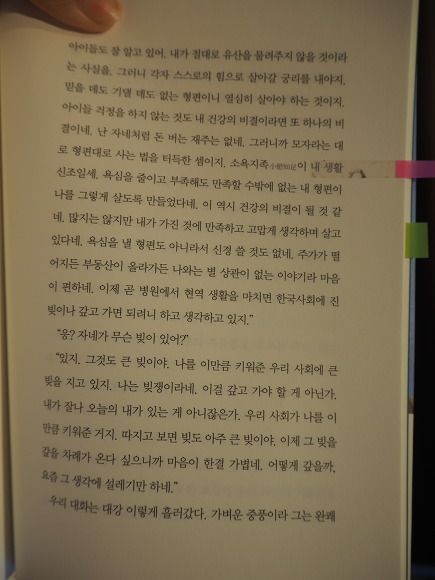 아이들도 잘 알고 있어. 내가 절대로 유산을 물려주지 않을 것이라
는 사실을. 그러니 각자 스스로의 힘으로 살아갈 궁리를 내야지.
믿을 데도 기댈 데도 없는 형편이니 열심히 살아야 하는 것이지.
아이들 걱정을 하지 않는 것도 내 건강의 비결이라면 또 하나의 비
결이네. 난 자네처럼 돈 버는 재주는 없네. 그러니까 모자라는 대
로 형편대로 사는 법을 터득한 셈이지. 소욕지족小慾知足이 내 생활
신조일세. 욕심을 줄이고 부족해도 만족할 수밖에 없는 내 형편이
나를 그렇게 살도록 만들었다네. 이 역시 건강의 비결이 될 것 같
네. 많지는 않지만 내가 가진 것에 만족하고 고맙게 생각하며 살고
있다네. 욕심을 낼 형편도 아니라서 신경 쓸 것도 없네. 주가가 떨
어지든 부동산이 올라가든 나와는 별 상관이 없는 이야기라 마음
이 편하네. 이제 곧 병원에서 현역 생활을 마치면 한국사회에 진
빚이나 갚고 가면 되려니 하고 생각하고 있지.”
“응? 자네가 무슨 빚이 있어?”
“있지. 그것도 큰 빚이야. 나를 이만큼 키워준 우리 사회에 큰
빚을 지고 있지. 나는 빚쟁이라네. 이걸 갚고 가야 할 게 아닌가.
내가 잘나 오늘의 내가 있는 게 아니잖은가. 우리 사회가 나를 이
만큼 키워준 거지. 따지고 보면 빚도 아주 큰 빚이야. 이제 그 빚을
갚을 차례가 온다 싶으니까 마음이 한결 가볍네. 어떻게 갚을까,
요즘 그 생각에 설레기만 하네.”
우리 대화는 대강 이렇게 흘러갔다. 가벼운 중풍이라 그는 완쾌